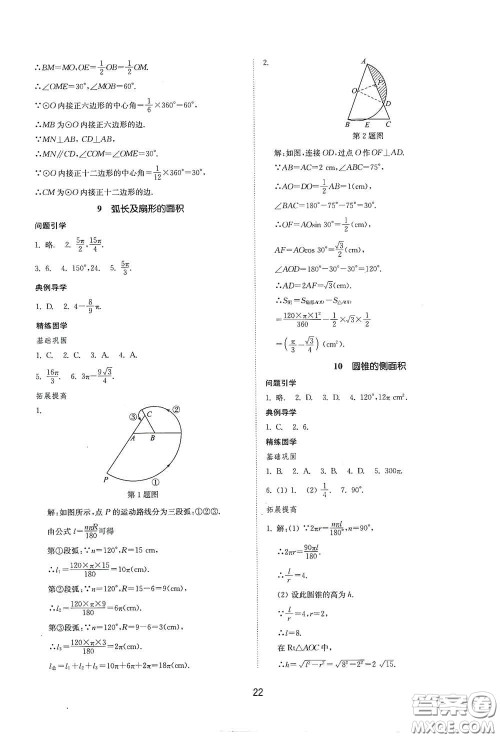 ∴BM=MO,OE=1/2OB=1/2OM.
∴∠OME=30°,∠MOB=60°.
∵⊙O内接正六边形的中心角=1/6×360°=60°.
∴MB为⊙O内接正六边形的边.
∵MN⊥AB,CD⊥AB,
∴MN∥CD,∠COM=∠OME=30°.
∵⊙O内接正十二边形的中心角=1/12×360°=30°.
∴CM为⊙O内接正十二边形的边.
9 弧长及扇形的面积
问题引学
1. 略. 2. 5π/2,15π/4.
3. 6. 4. 150°,24. 5. 5π/3.
典例导学
1. D. 2. 4-8/9π.
精练固学
基础巩固
1. C. 2. C. 3. B. 4. C.
5. 16π/3. 6. 3π-9√3/4.
拓展提高
1.
C
②
③
A
B
P
①
第1题图
解:如图所示,点P的运动路线分为三段弧:①②③.
由公式l=nπR/180可得
第①段弧:∵n=120°,R=15(cm).
∴l₁=120×π×15/180=10π(cm).
第②段弧:∵n=120°,R=15-6=9(cm).
∴l₂=120×π×9/180=6π(cm).
第③段弧:∵n=120°,R=9-6=3(cm).
∴l₃=120×π×3/180=2π(cm).
l总=l₁+l₂+l₃=10π+6π+2π=18π(cm).
2.
A
F
O
D
B
E
C
第2题图
解:如图,连接OD,过点O作OF⊥AD.
∵AB=AC=2(cm),∠ABC=75°,
∴AO=DO=1/2AB=1(cm),
∠BAC=180°-75°-75°=30°.
∴OF=AOsin 30°=1/2(cm),
AF=AOcos 30°=√3/2(cm).
∠AOD=180°-30°-30°=120°.
∴AD=2AF=√3(cm).
∴S阴=S扇形AOD-S△AOD
=120×π×1²/360-1/2×1/2×√3
=(π/3-√3/4)(cm²).
10 圆锥的侧面积
问题引学
1. 略. 2. D. 3. D. 4. 12π cm².
典例导学
1. C. 2. C.
精练固学
基础巩固
1. B. 2. A. 3. D. 4. D. 5. 300π.
6. (1)1. (2)1/4. 7. 90°.
拓展提高
1. 解:(1)∵2πr=nπl/180,n=90°,
∴2πr=90πl/180.
∴l/r=4.
(2)设此圆锥的高为h.
∵l/r=4,r=2,
∴l=8.
在Rt△AOC中,
∴h=√l²-r²=√8²-2²=2√15.
22
答案圈
MXQE.COM